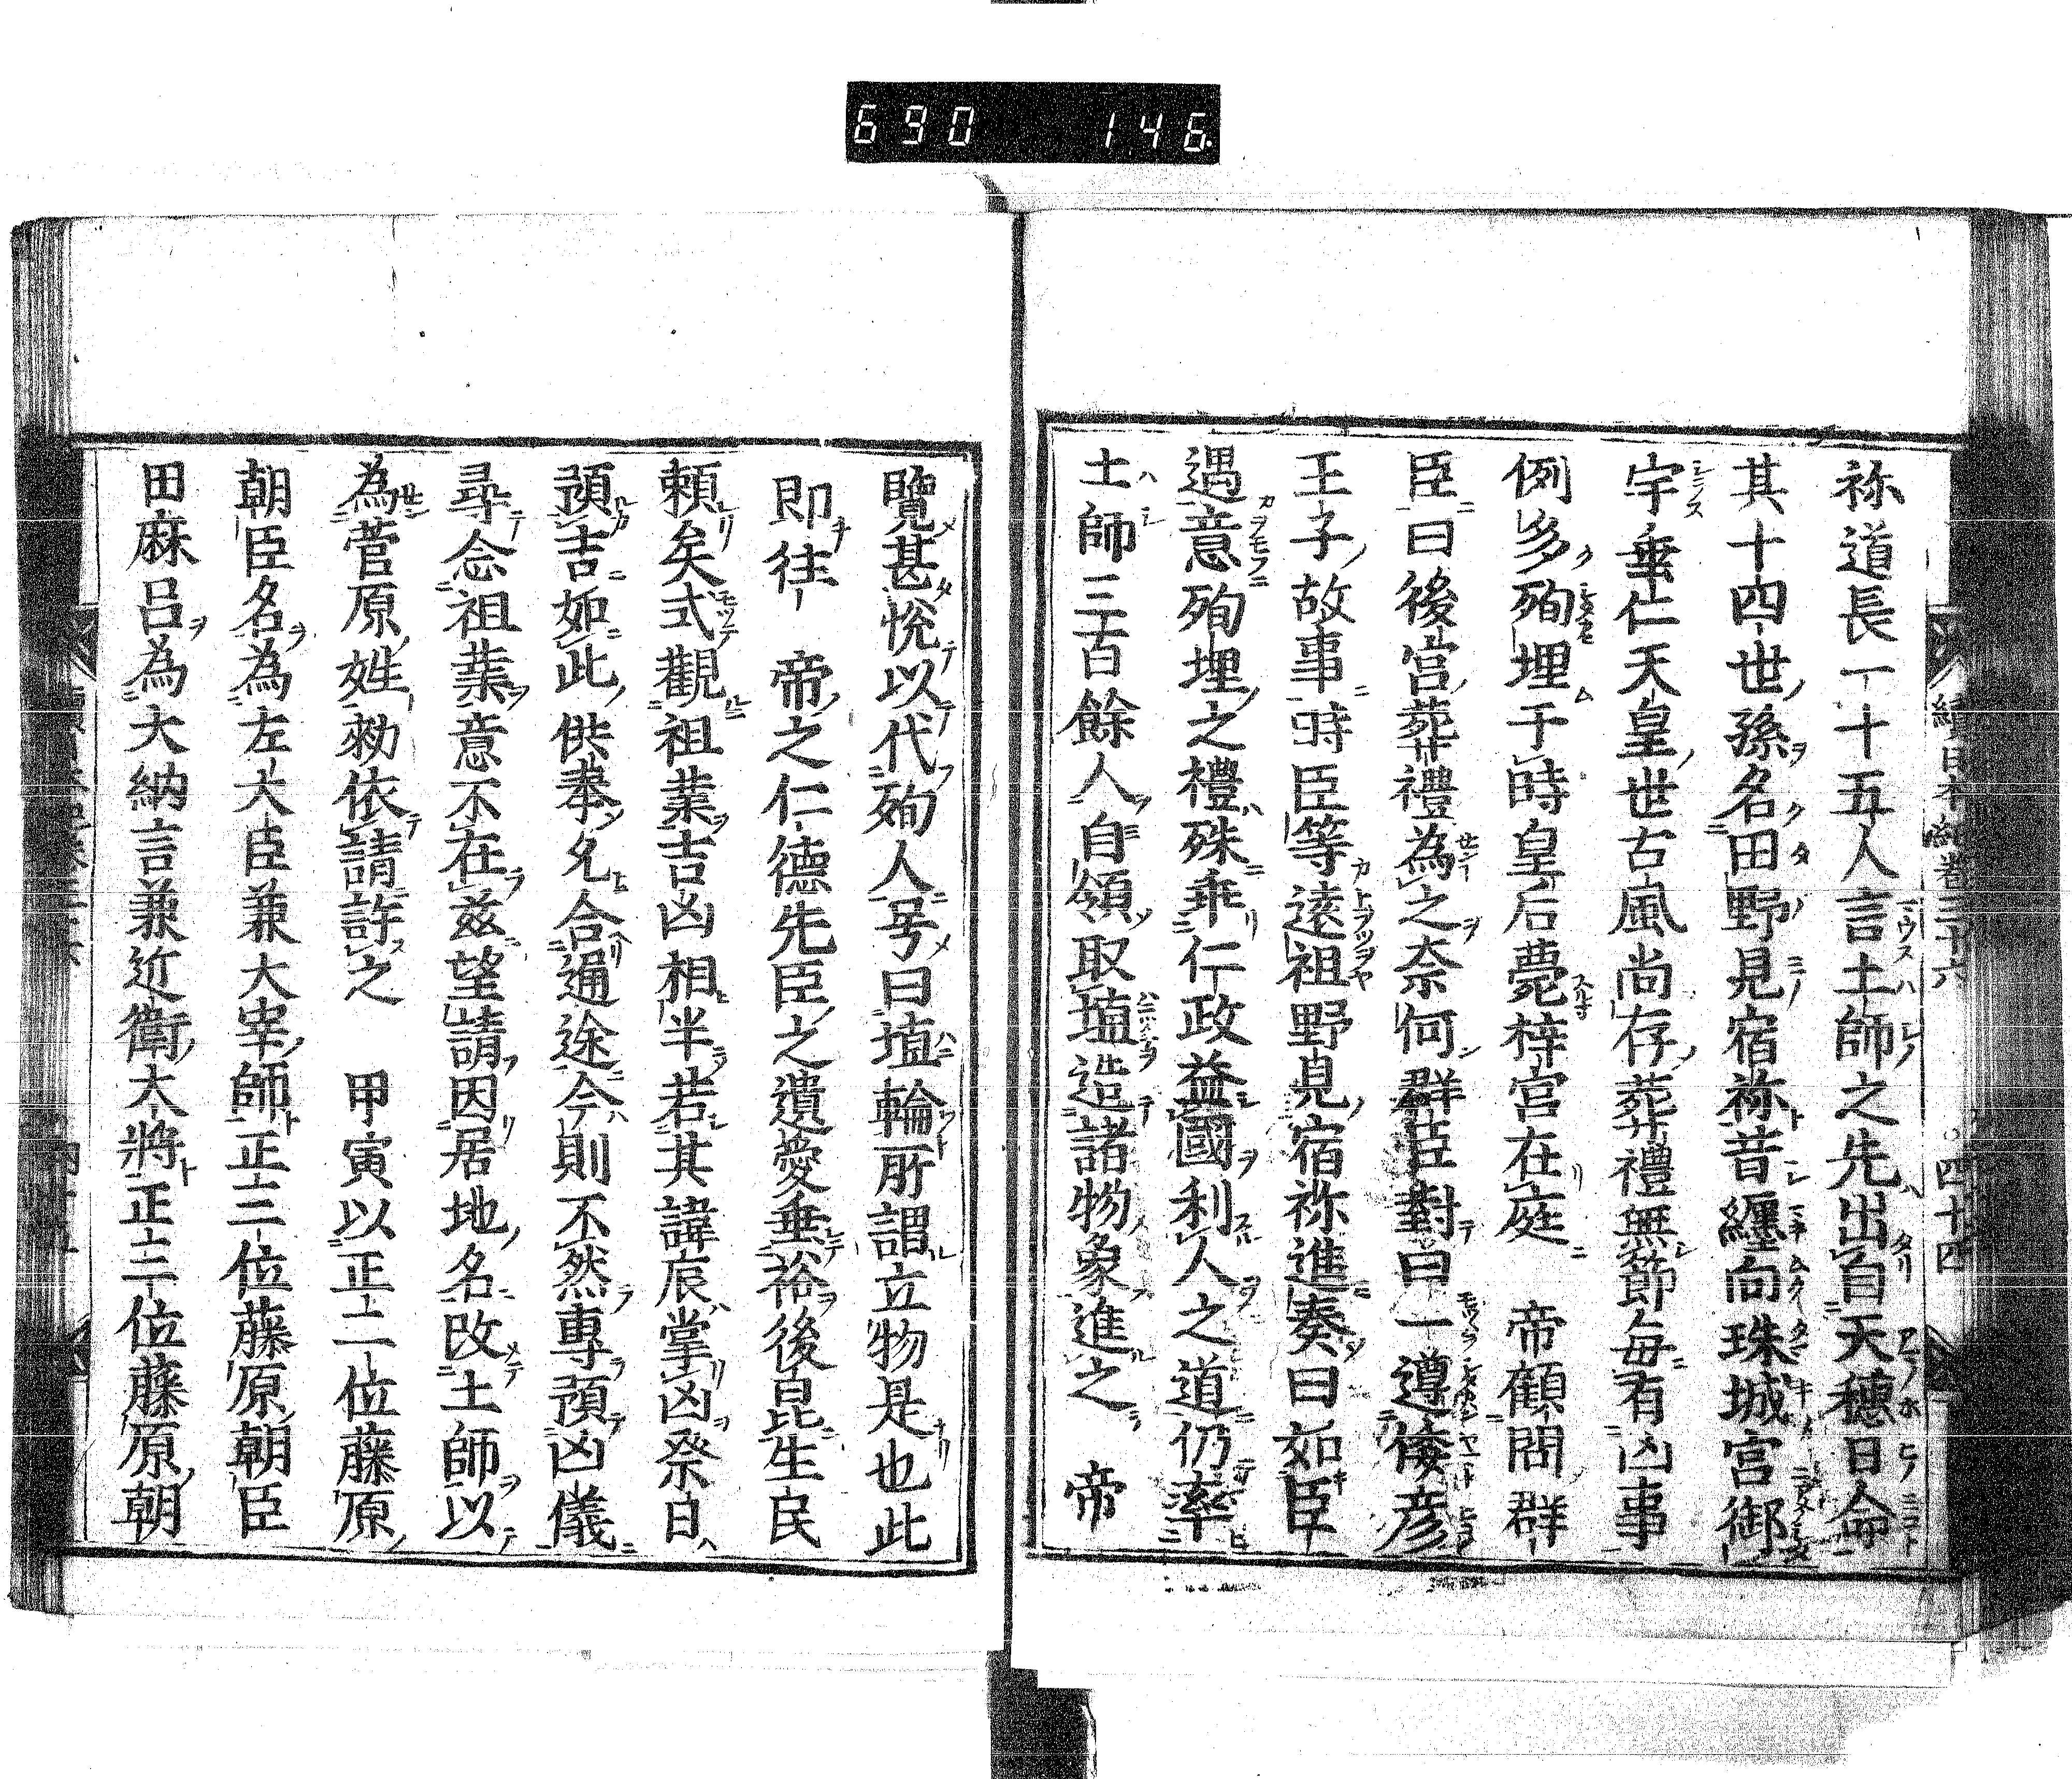 690 146
續日本紀卷三十六 四十四
祢道長一十五人言土師之先出自天穂日命
其十四世孫名田野見宿祢昔纒向珠城宮御
宇垂仁天皇世古風尚存葬禮無節毎有凶事
例多殉埋于時皇后薨梓宮在庭 帝顧問群
臣曰後宮葬禮為之奈何群臣對曰一遵倭彦
王子故事時臣等遠祖野見宿祢進奏曰如臣
遇意殉埋之禮殊乖仁政益國利人之道仍率
土師三百餘人自領取埴造諸物象進之 帝
覽甚悅以代殉人号曰埴輪所謂立物是也此
即往 帝之仁德先臣之遺愛垂裕後昆生民
頼矣式觀祖業吉凶相半若其諱辰掌凶祭日
預吉如此供奉允合通途今則不然專預凶儀
尋念祖業意不在茲望請因居地名改土師以
為菅原姓勑依請許之 甲寅以正二位藤原
朝臣名為左大臣兼大宰師正三位藤原朝臣
田麻呂為大納言兼近衛大將正三位藤原朝